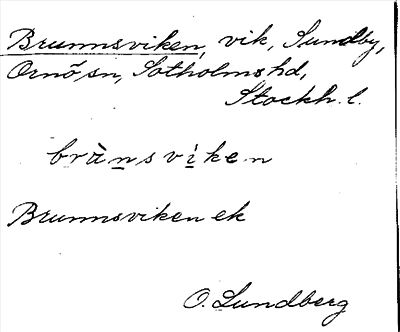 Brunnsviken, vik, Sundby,
Ornö sn, Sotholms hd,
Stockh. l.
brànsvìken
Brunnsviken ek
O. Lundberg